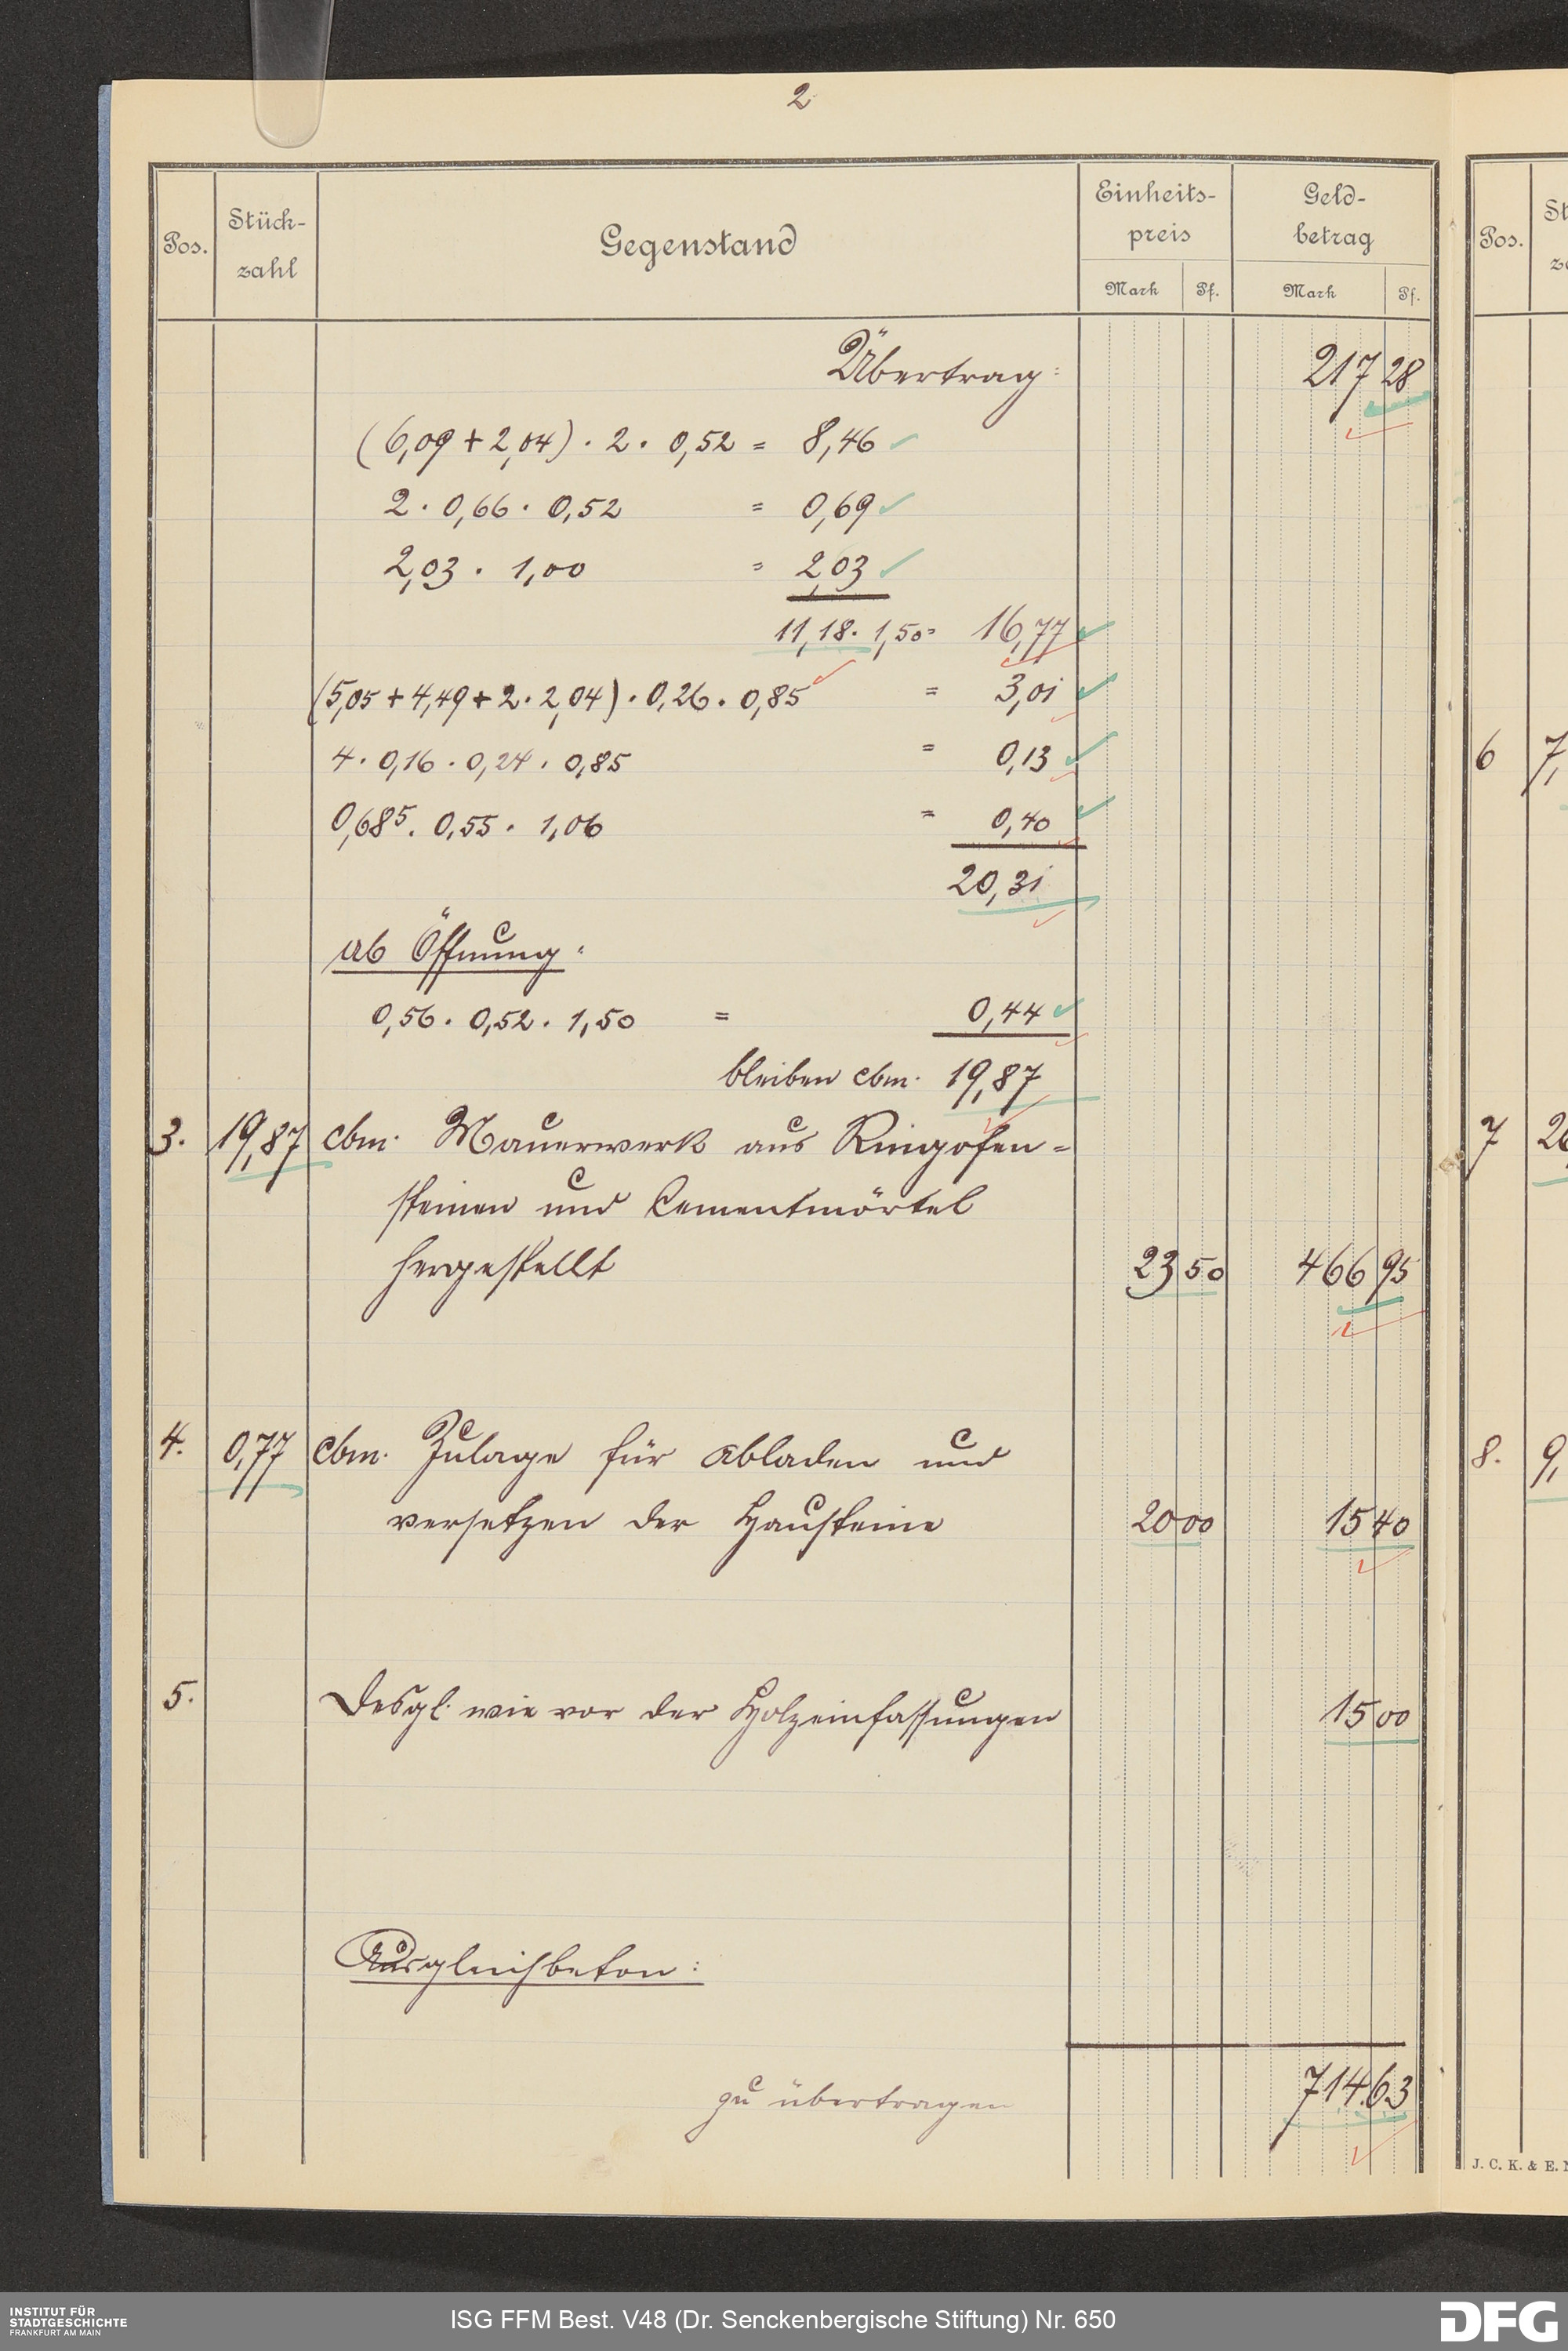 2
Pos. Stück-zahl Gegenstand Einheits-preis Geld-betrag
Mark Pf. Mark Pf.
Übertrag: 217 28
(6,09 + 2,04) . 2 . 0,52 = 8,46
2 . 0,66 . 0,52 = 0,69
2,03 . 1,00 = 2,03
11,18 . 1,50 = 16,77
(5,05 + 4,49 + 2 . 2,04) . 0,26 . 0,85 = 3,01
4 . 0,16 . 0,24 . 0,85 = 0,13
0,685 . 0,55 . 1,06 = 0,40
20,31
ab Öffnung:
0,56 . 0,52 . 1,50 = 0,44
bleiben cbm. 19,87
3. 19,87 cbm. Mauerwerk aus Ringofen=
steinen und Cementmörtel
hergestellt 23 50 466 95
4. 0,77 cbm. Zulage für Abladen und
versetzen der Hausteine 20 00 15 40
5. Desgl. wie vor der Holzeinfassungen 15 00
Ausgleichbeton:
zu übertragen 714.63
Pos.
St
z
6 7,
7 26
8. 9,
J. C. K. & E.
INSTITUT FÜR
STADTGESCHICHTE
FRANKFURT AM MAIN
ISG FFM Best. V48 (Dr. Senckenbergische Stiftung) Nr. 650
DFG